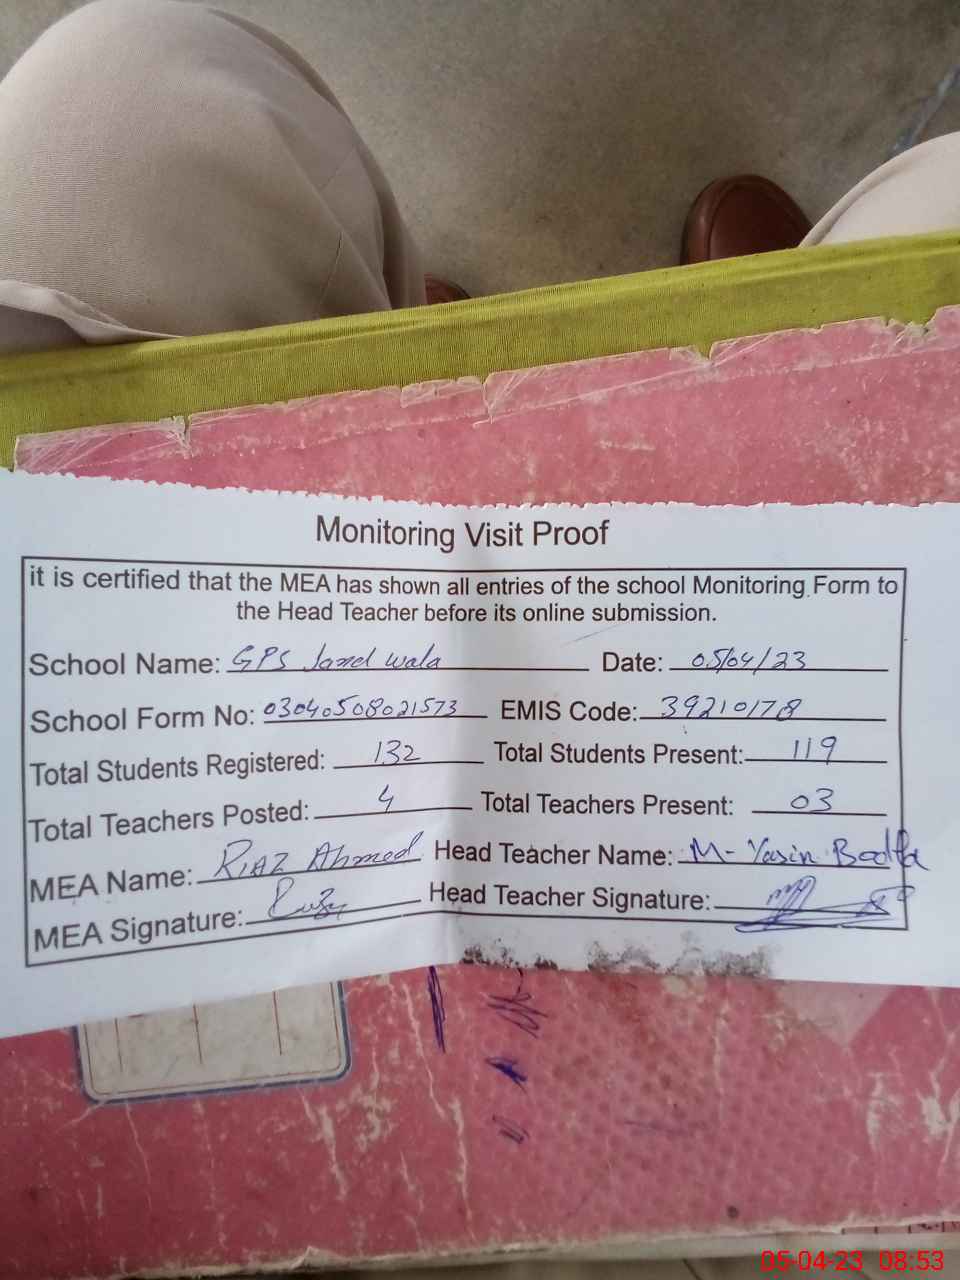 Monitoring Visit Proof
it is certified that the MEA has shown all entries of the school Monitoring Form to
the Head Teacher before its online submission.
School Name: GPS Jand wala Date: 05/04/23
School Form No: 03040508021573 EMIS Code: 39210178
Total Students Registered: 132 Total Students Present: 119
Total Teachers Posted: 4 Total Teachers Present: 03
MEA Name: Riaz Ahmed Head Teacher Name: M- Yasin
MEA Signature: Head Teacher Signature:
05-04-23 08:53